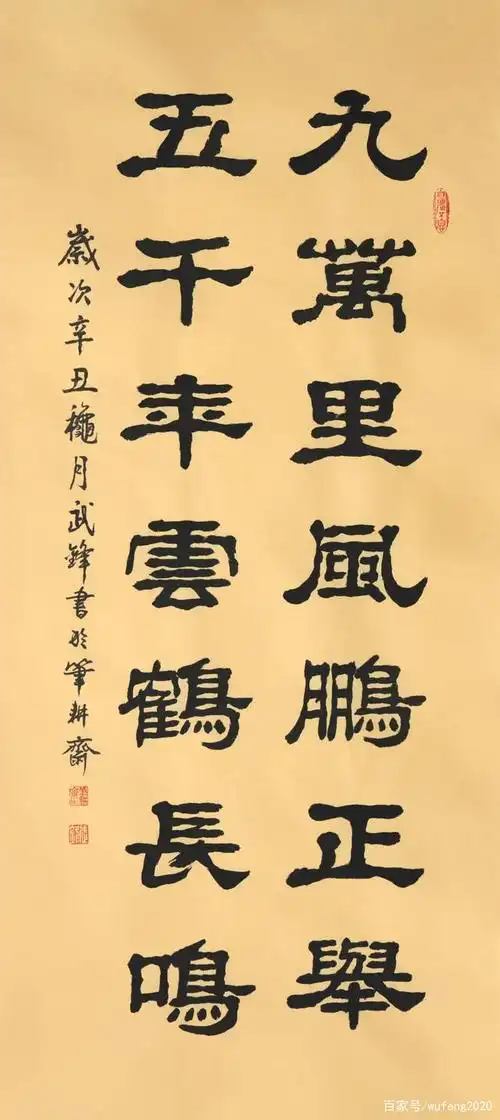 九萬里風鵬正舉
五千年雲鶴長鳴
歲次辛丑龝月武鋒書於筆耕齋
百家号/wufeng2020